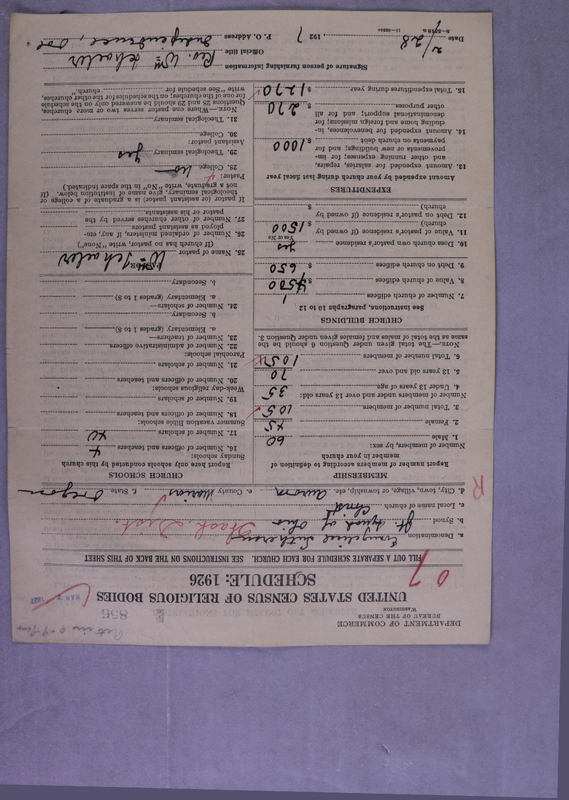 DEPARTMENT OF COMMERCE
BUREAU OF THE CENSUS
WASHINGTON
856
UNITED STATES CENSUS OF RELIGIOUS BODIES
SCHEDULE: 1926
07
FILL OUT A SEPARATE SCHEDULE FOR EACH CHURCH. SEE INSTRUCTIONS ON THE BACK OF THIS SHEET
a. Denomination Evangelical Lutheran
b. Synod Jt. Synod of Ohio
c. Local name of church Christ
d. City, town, village, or township, etc. Aurora e. County Marion f. State Oregon
R
MEMBERSHIP
Report number of members according to definition of
member in your church
Number of members, by sex:
1. Male 60
2. Female 45
3. Total number of members 105
Number of members under and over 13 years old:
4. Under 13 years of age 35
5. 13 years old and over 70
6. Total number of members 105
NOTE.—The total given under Question 6 should be the
same as the total of males and females given under Question 3.
CHURCH BUILDINGS
See instructions, paragraphs 10 to 12
7. Number of church edifices 1
8. Value of church edifices $ 4500
9. Debt on church edifices $ 650
10. Does church own pastor's residence yes
Yes or No
11. Value of pastor's residence (if owned by
church) $ 1500
12. Debt on pastor's residence (if owned by
church) $
EXPENDITURES
Amount expended by your church during last fiscal year
13. Amount expended for salaries, repairs,
and other running expenses; for im-
provements or new buildings; and for
payments on church debt $ 1000
14. Amount expended for benevolences, in-
cluding home and foreign missions; for
denominational support; and for all
other purposes $ 270
15. Total expenditures during year $ 1270
CHURCH SCHOOLS
Report here only schools conducted by this church
Sunday schools:
16. Number of officers and teachers 4
17. Number of scholars 40
Summer vacation Bible schools:
18. Number of officers and teachers
19. Number of scholars
Week-day religious schools:
20. Number of officers and teachers
21. Number of scholars
Parochial schools:
22. Number of administrative officers
23. Number of teachers—
a. Elementary (grades 1 to 8)
b. Secondary
24. Number of scholars—
a. Elementary (grades 1 to 8)
b. Secondary
PASTOR
25. Name of pastor Wm Schoeler
(If church has no pastor, write "None")
26. Number of ordained ministers, if any, em-
ployed as assistant pastors
27. Number of other churches served by the
pastor or his assistants
If pastor or assistant pastor is a graduate of a college or
theological seminary, give name of institution below. (If
not a graduate, write "No" in the space indicated.)
Pastor:
28. College no
29. Theological seminary yes
Assistant pastor:
30. College
31. Theological seminary
NOTE.—Where one pastor serves two or more churches,
Questions 28 and 29 should be answered only on the schedule
for one of the churches; on the schedules for the other churches,
write "See schedule for church."
Signature of person furnishing information
Rev. Wm Schoeler
Official title
P. O. Address Independence, Ore
Date 2/28, 1927